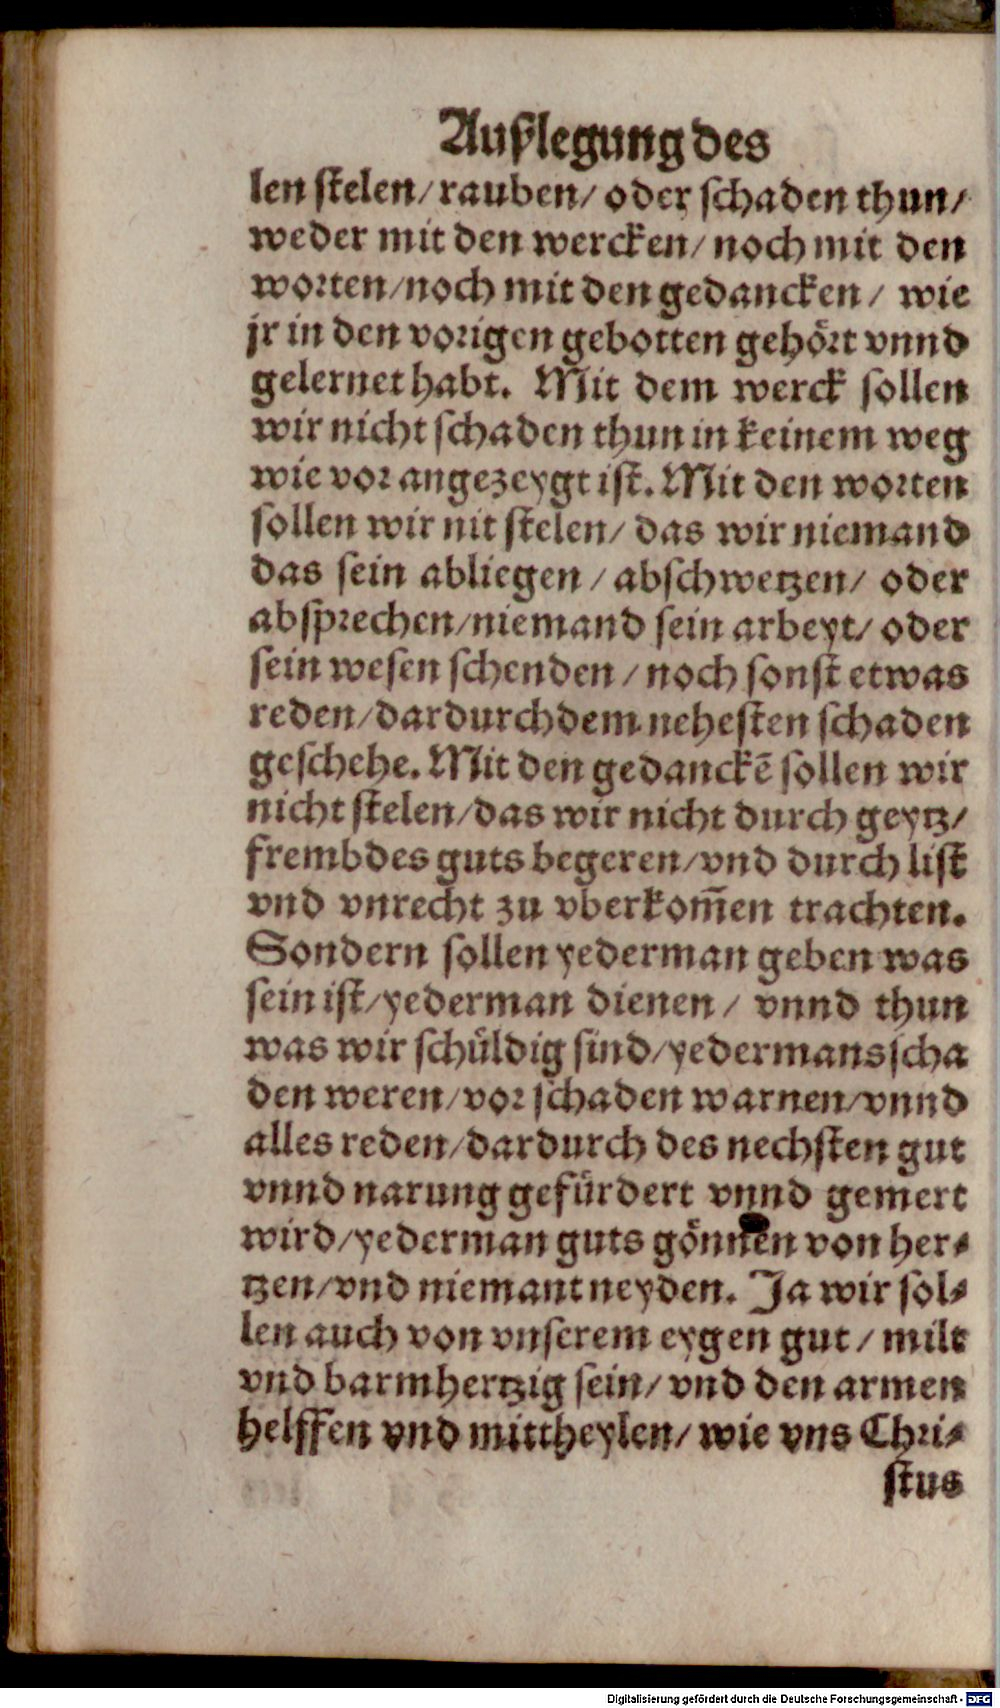 Außlegung des
len stelen/ rauben/ oder schaden thun/
weder mit den wercken/ noch mit den
worten/noch mit den gedancken/ wie
jr in den vorigen gebotten gehört vnnd
gelernet habt. Mit dem werck sollen
wir nicht schaden thun in keinem weg
wie vor angezeygt ist. Mit den worten
sollen wir nit stelen/ das wir niemand
das sein abliegen/ abschwetzen/ oder
absprechen/niemand sein arbeyt/ oder
sein wesen schenden/ noch sonst etwas
reden/dardurch dem nehesten schaden
geschehe. Mit den gedanckē sollen wir
nicht stelen/das wir nicht durch geytz/
frembdes guts begeren/vnd durch list
vnd vnrecht zu vberkom̄en trachten.
Sondern sollen yederman geben was
sein ist/yederman dienen/ vnnd thun
was wir schüldig sind/yedermans scha
den weren/vor schaden warnen/vnnd
alles reden/dardurch des nechsten gut
vnnd narung gefürdert vnnd gemert
wird/yederman guts gönnen von her⸗
tzen/vnd niemant neyden. Ja wir sol⸗
len auch von vnserem eygen gut/ milt
vnd barmhertzig sein/ vnd den armen
helffen vnd mittheylen/ wie vns Chri⸗
stus
Digitalisierung gefördert durch die Deutsche Forschungsgemeinschaft - DFG